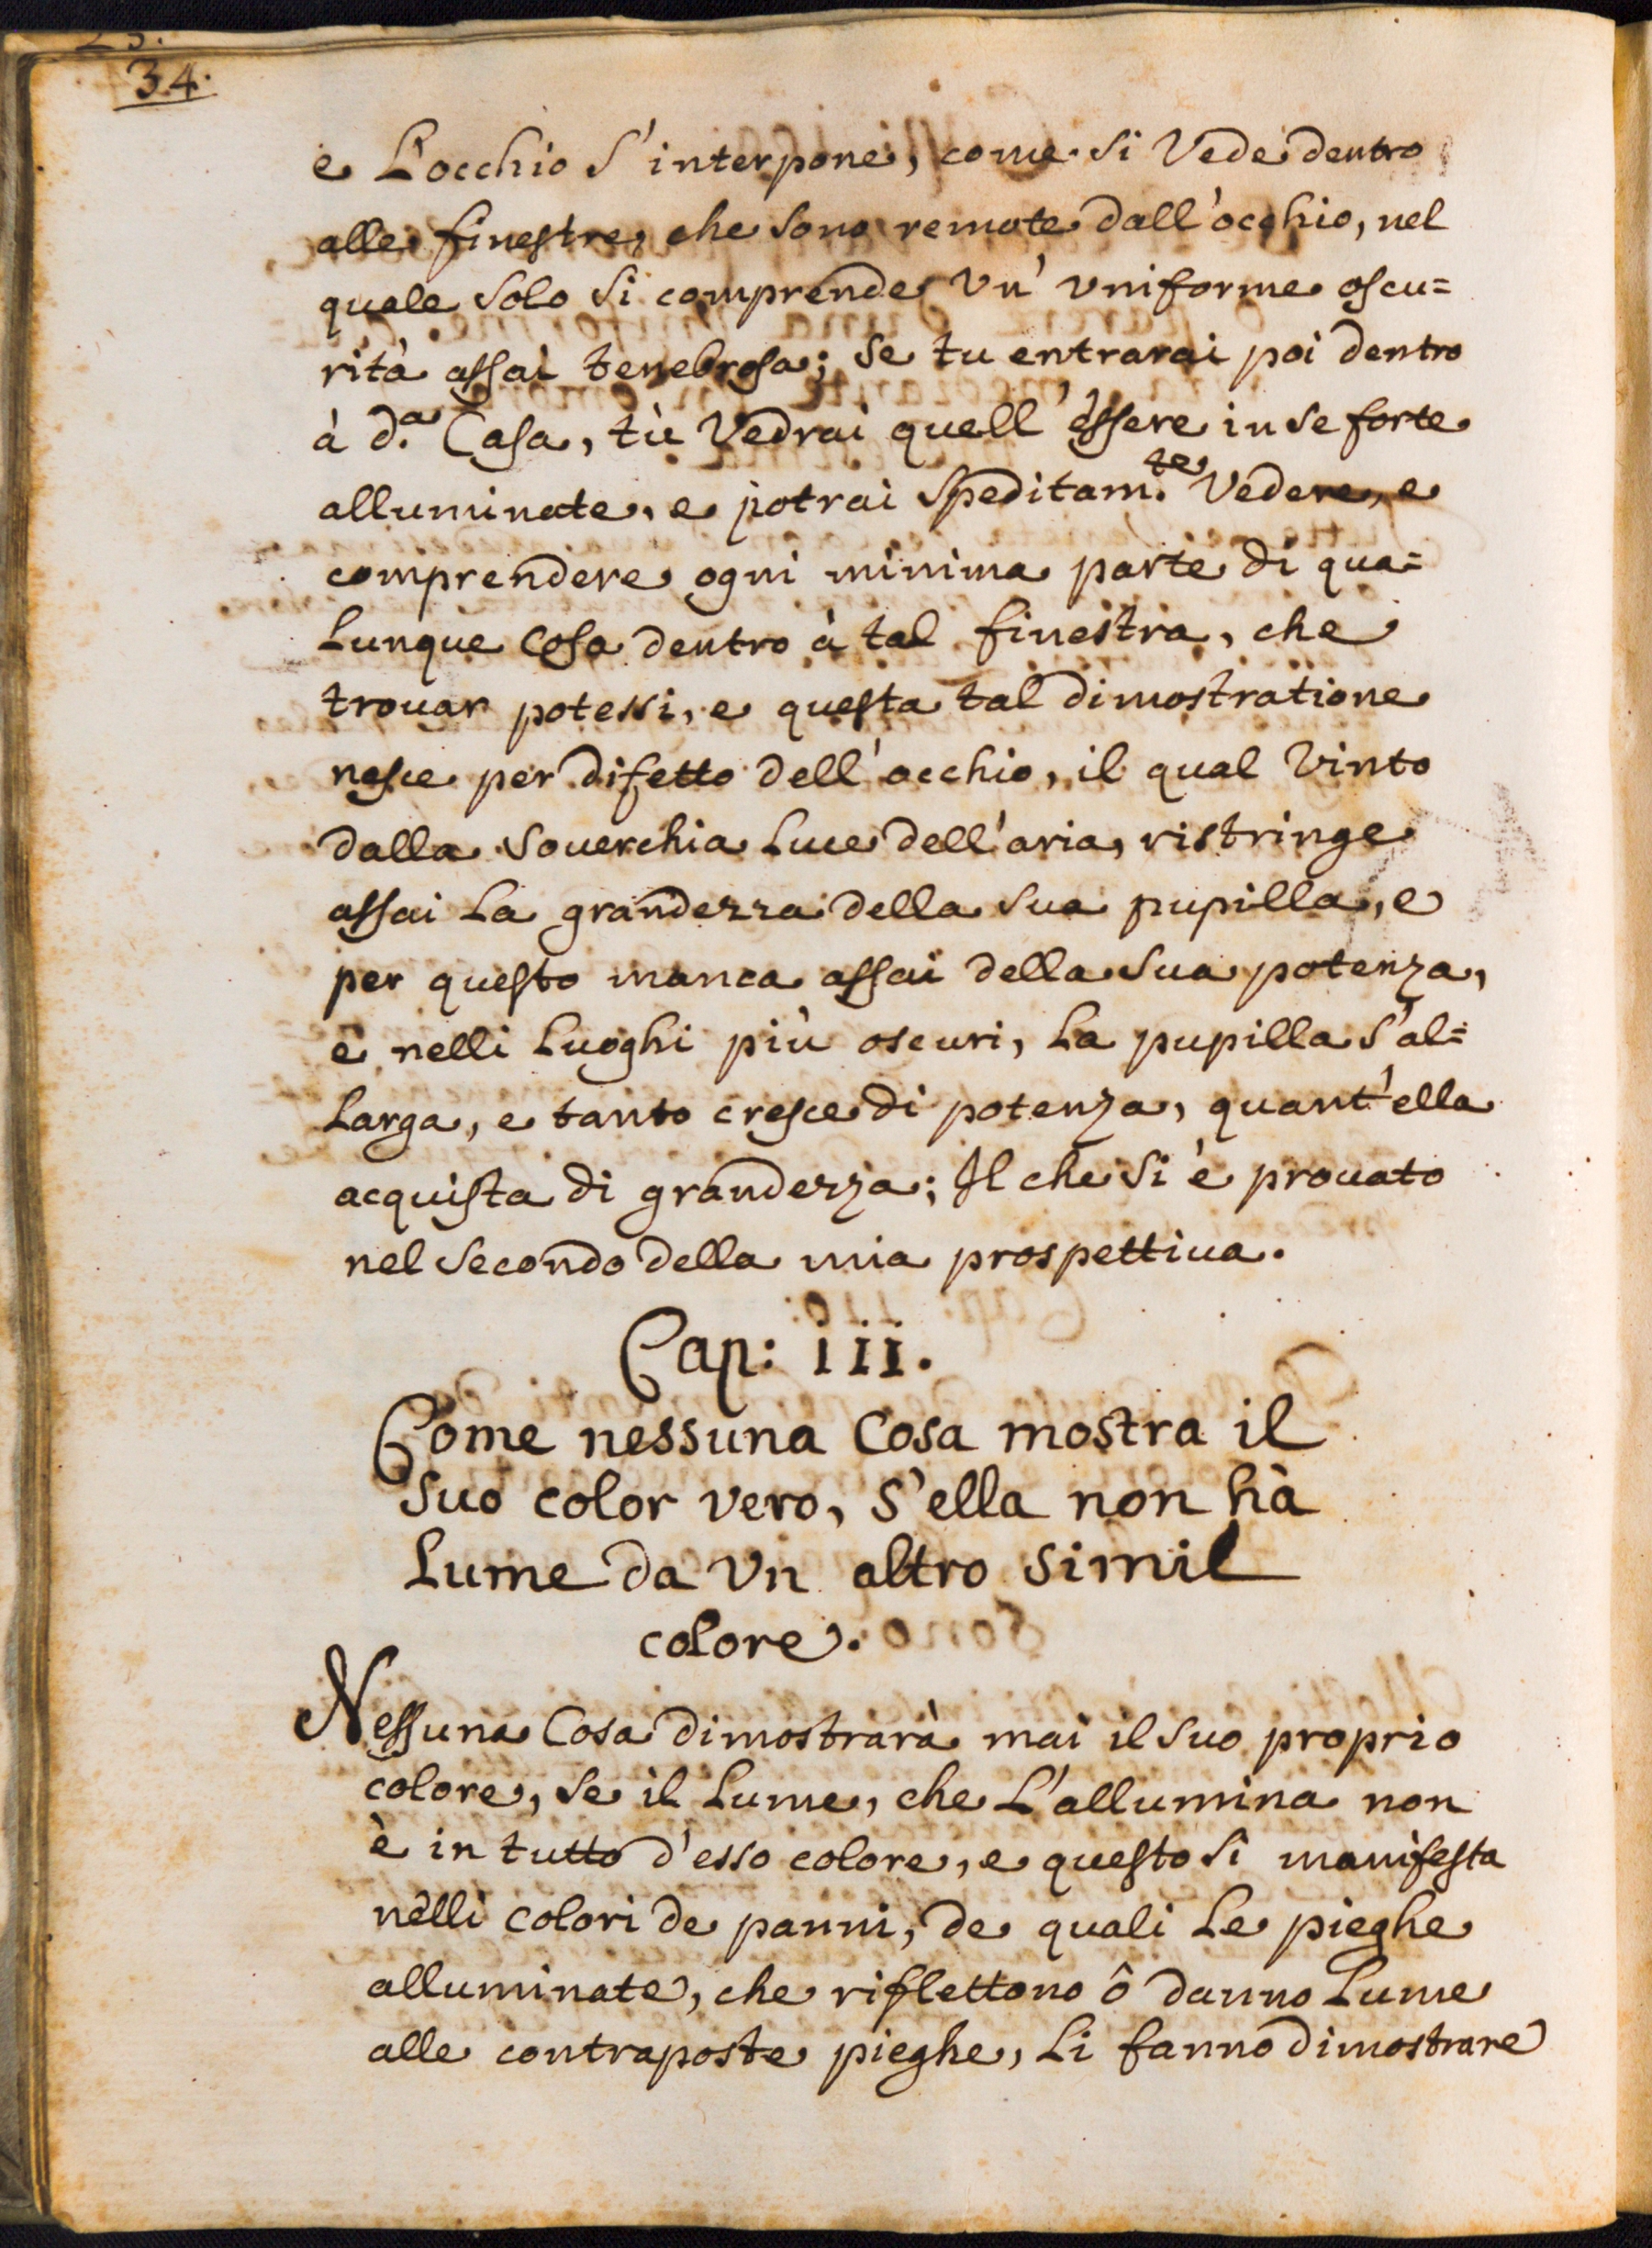 34.
e L'occhio s'interpone, come si Vede dentro
alle finestre, che sono remote dall'occhio, nel
quale solo si comprende Vn' vniforme oscu=
rità assai tenebrosa; se tu entrarai poi dentro
à d.ª Casa, tù Vedrai quell'èssere in se forte
alluminate, e potrai speditam.te Vedere, e
comprendere ogni minima parte di qua=
Lunque Cosa dentro à tal finestra, che
trouar potessi, e questa tal dimostratione
nasce per difetto dell'occhio, il qual Vinto
dalla souerchia Luce dell'aria, ristringe
assai La grandezza della sua pupilla, e
per questo manca assai della sua potenza,
e nelli Luoghi più oscuri, La pupilla s'al=
Larga, e tanto cresce di potenza, quant'ella
acquista di grandezza; Il che si è prouato
nel secondo della mia prospettiua.
Cap: iii.
Come nessuna Cosa mostra il
suo color vero, s'ella non hà
Lume da Vn altro simil
colore.
Nessuna Cosa dimostrarà mai il suo proprio
colore, se il Lume, che L'allumina non
è in tutto d'esso colore, e questo si manifesta
nelli colori de panni, de quali Le pieghe
alluminate, che riflettono ô danno Lume
alle contraposte pieghe, Li fanno dimostrare